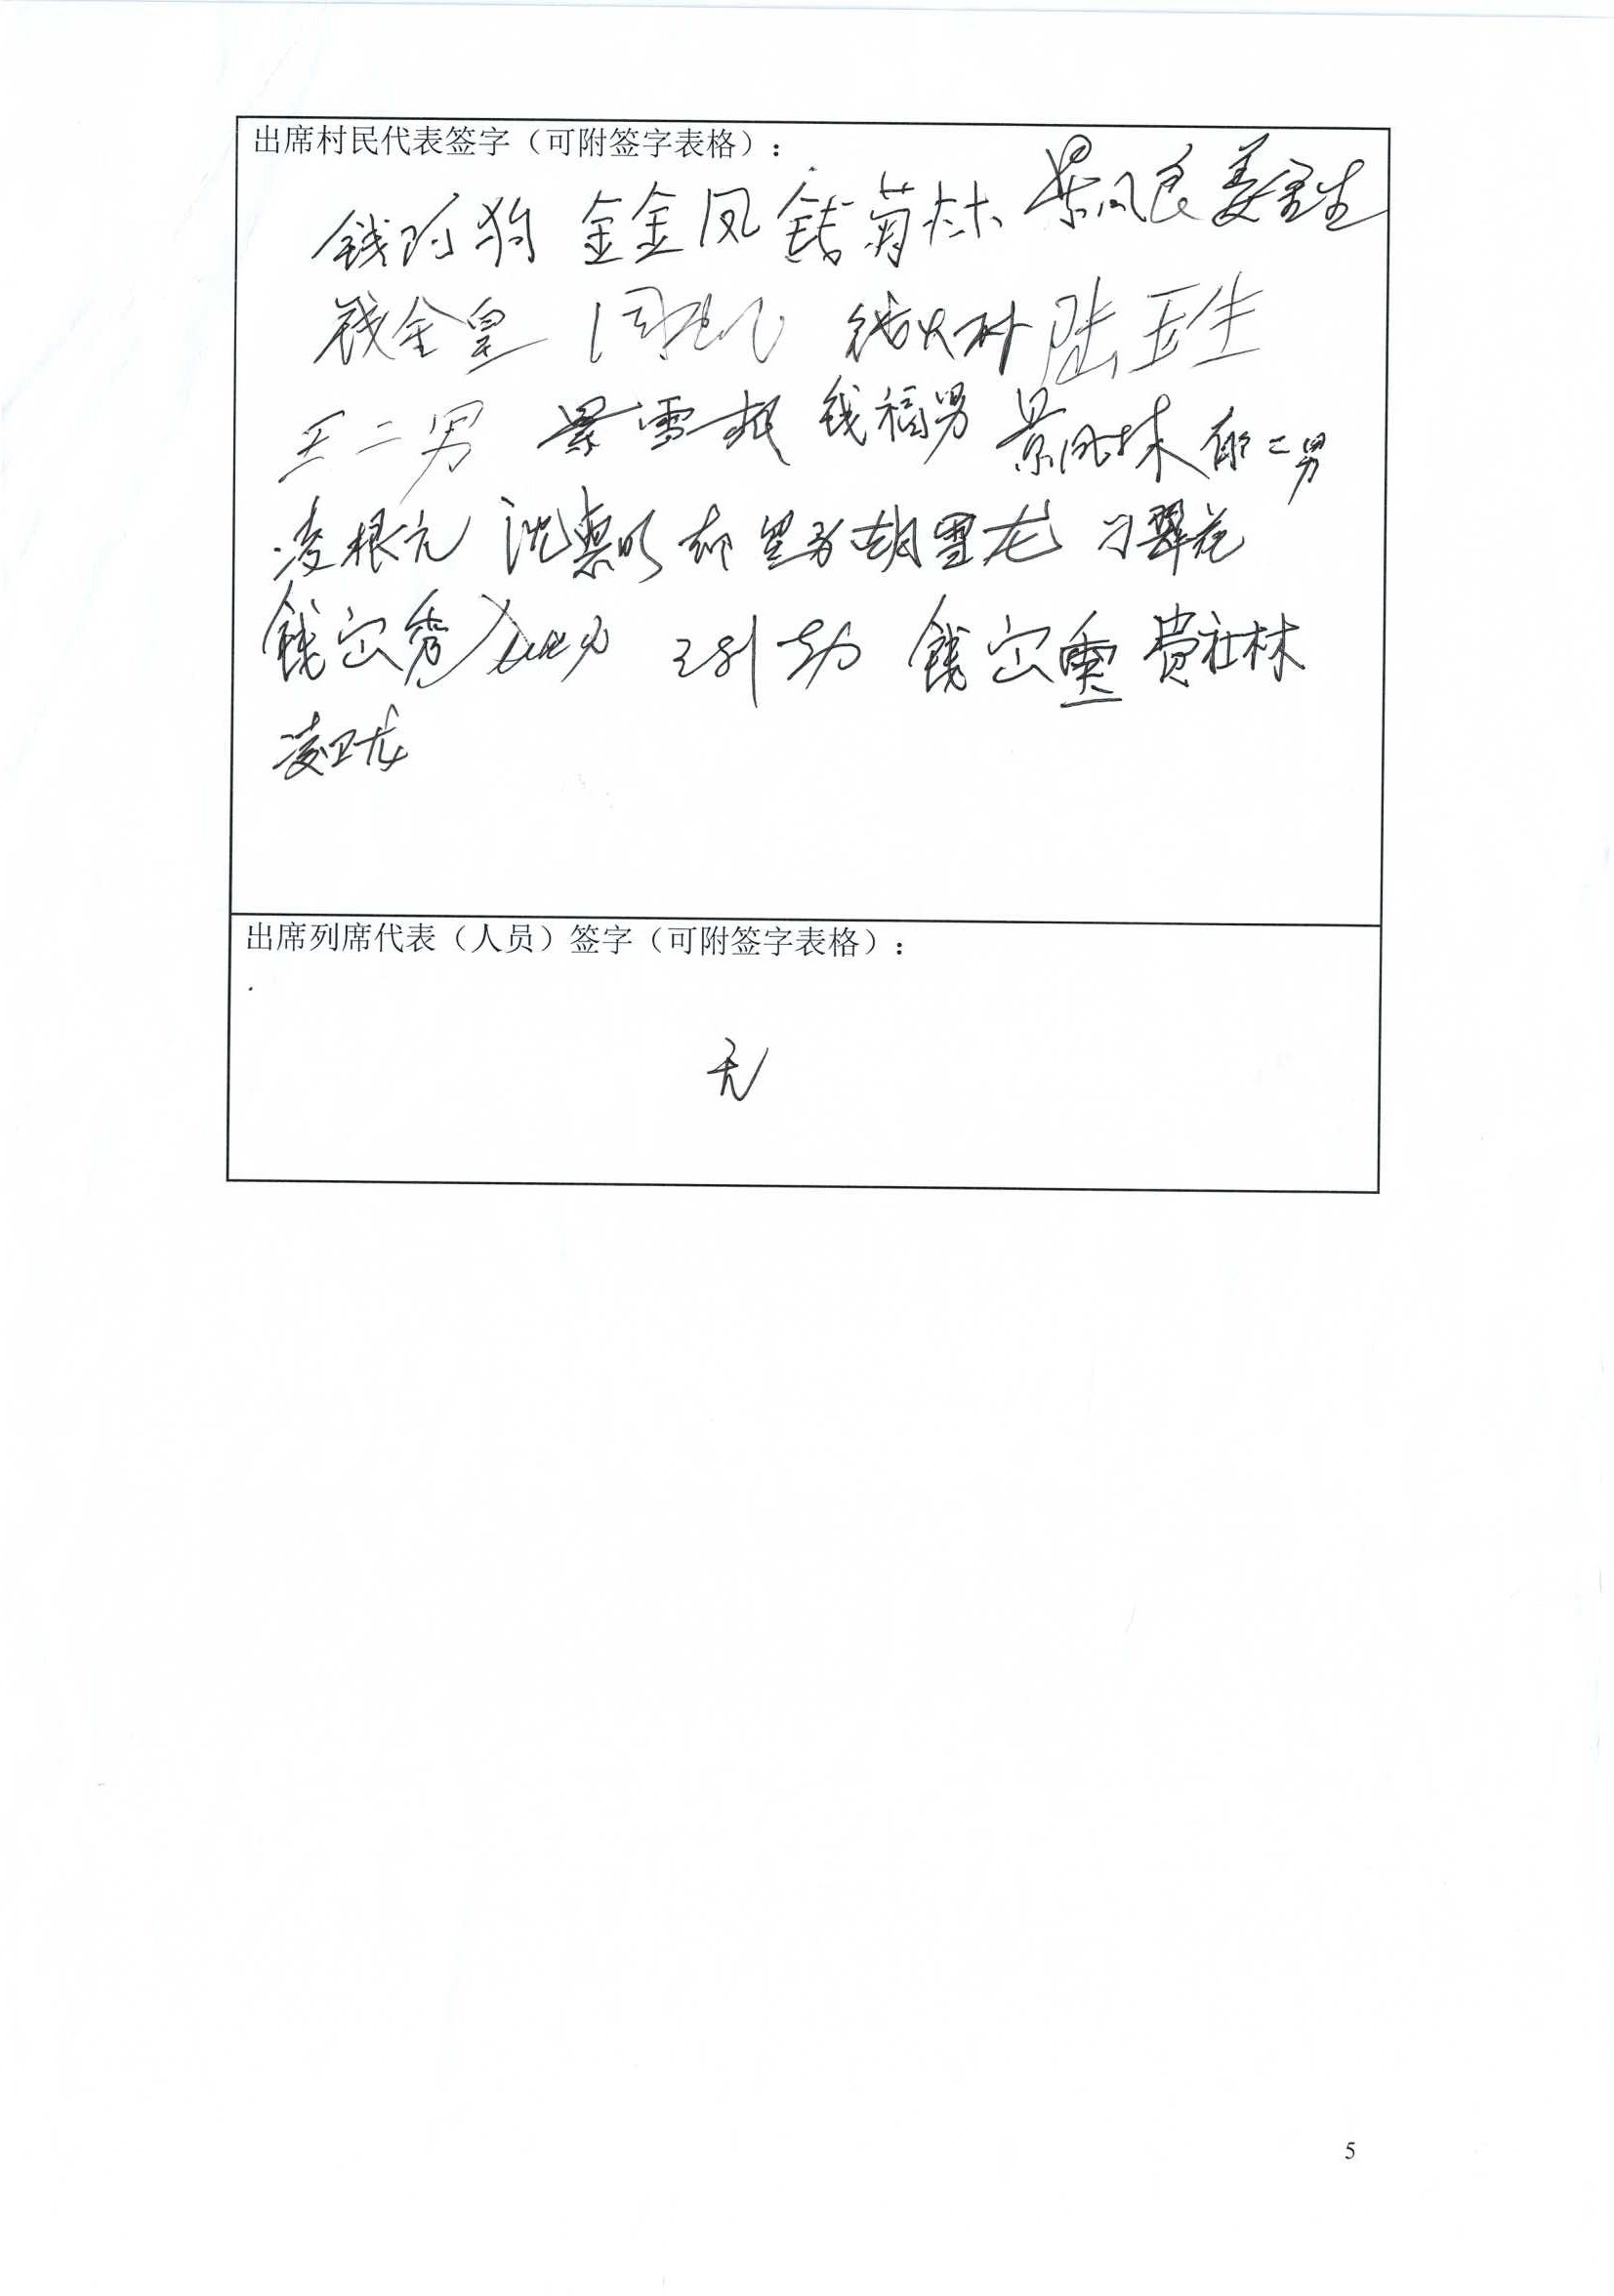 出席村民代表签字（可附签字表格）：
钱阿狗 金金凤 钱菊林 景凤良 姜金生
钱全皇 钱火林 陆玉生
王二男 景雪根 钱福男 景凤林 郁二男
凌根元 沈惠明 胡雪龙 刁翠花
钱宝秀 钱宝 费社林
凌卫龙
出席列席代表（人员）签字（可附签字表格）：
无
5